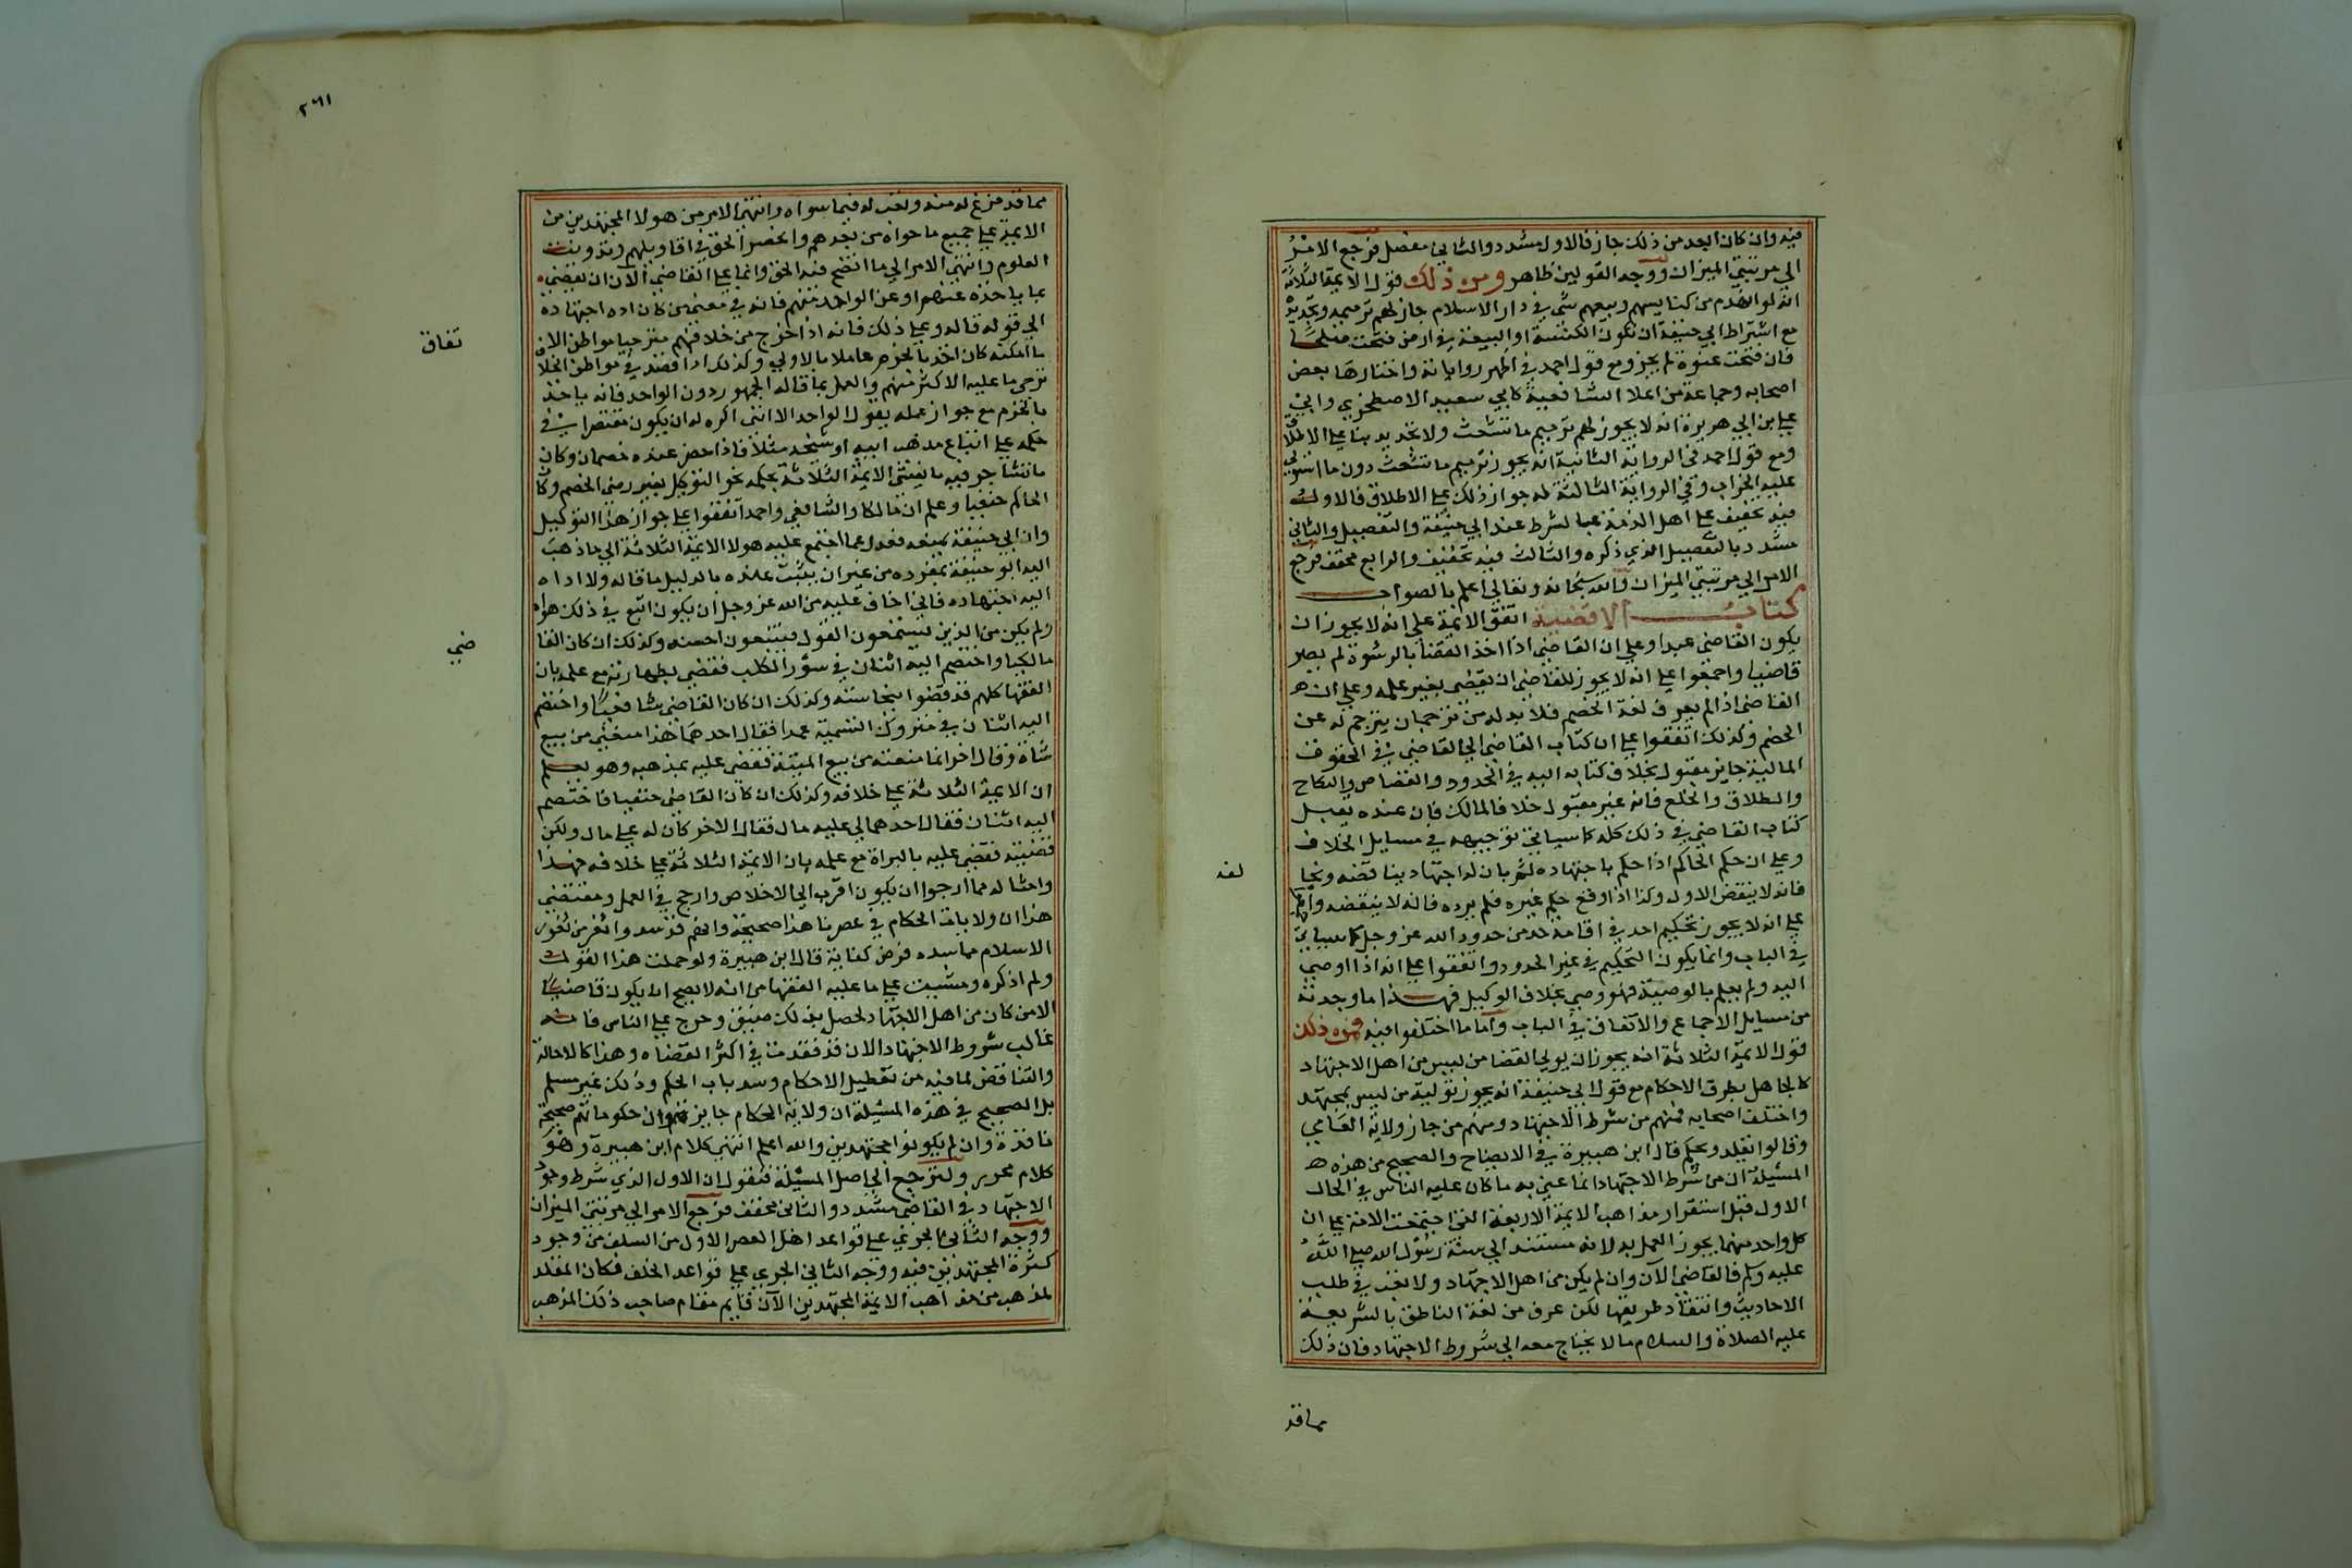 فيه وان كان البعد من ذلك جاز فالاول مشدد والثاني مفصل فرجع الامر
الي مرتبتي الميزان ووجه القولين ظاهر ومن ذلك قول الايمة الثلاثة
انه لو انهدم من كنايسهم وبيعهم شي في دار الاسلام جاز لهم ترميمه وتجديده
مع اشتراط ابي حنيفة ان تكون الكنيسة او البيعة في ارض فتحت صلحا
فان فتحت عنوة لم يجز ومع قول احمد في اظهر رواياته واختارها بعض
اصحابه وجماعة من اعلا الشافعية كابي سعيد الاصطخري وابي
علي بن ابي هريرة انه لا يجوز لهم ترميم ما تشعث ولا تجديد بنا علي الاطلاق
ومع قول احمد في الرواية الثانية انه يجوز ترميم ما تشعث دون ما استولي
عليه الخراب وفي الرواية الثالثة له جواز ذلك علي الاطلاق فالاول
فيه تخفيف علي اهل الذمة بالشرط عند ابي حنيفة والتفصيل والثاني
مشدد بالتفصيل الذي ذكره والثالث فيه تخفيف والرابع مخفف فرجع
الامر الي مرتبتي الميزان والله سبحانه وتعالي اعلم بالصواب
كتاب الاقضية اتفق الايمة علي انه لا يجوز ان
يكون القاضي عبدا وعلي ان القاضي اذا اخذ القضا بالرشوة لم يصر
قاضيا واجمعوا علي انه لا يجوز للقاضي ان يقضي بغير علمه وعلي ان
القاضي اذا لم يعرف لغة الخصم فلا بد له من ترجمان يترجم له عن
الخصم وكذلك اتفقوا علي ان كتاب القاضي الي القاضي في الحقوق
المالية جايز مقبول بخلاف كتابه اليه في الحدود والقصاص والنكاح
والطلاق والخلع فانه غير مقبول خلافا لمالك فان عنده يقبل
كتاب القاضي في ذلك كله كما سياتي توجيهه في مسايل الخلاف
وعلي ان حكم الحاكم اذا حكم باجتهاده ثم بان له اجتهاد يناقضه ويخا
لفه
فانه لا ينقض الاول وكذا اذا وقع حكم غيره فلم يرده فانه لا ينقضه واتفقوا
علي انه لا يجوز تحكيم احد في اقامة حد من حدود الله عز وجل كما سياتي
في الباب وانما يكون التحكيم في غير الحدود واتفقوا علي انه اذا اوصي
اليه ولم يعلم بالوصية فهو وصي بخلاف الوكيل فهذا ما وجدته
من مسايل الاجماع والاتفاق في الباب واما ما اختلفوا فيه فمن ذلك
قول الايمة الثلاثة انه يجوز ان يولي القضا من ليس من اهل الاجتهاد
كالجاهل بطرق الاحكام مع قول ابي حنيفة انه يجوز تولية من ليس بمجتهد
واختلف اصحابه فمنهم من شرط الاجتهاد ومنهم من جاز ولاية العامي
وقالوا يقلد ويحكم قال ابن هبيرة في الايضاح والصحيح من هذه
المسيلة ان من شرط الاجتهاد انما عني به ما كان عليه الناس في الحال
الاول قبل استقرار مذاهب الايمة الاربعة التي اجتمعت الامة علي ان
كل واحد منهما يجوز العمل به لانه مستند الي سنة رسول الله صلي الله
عليه وسلم فالقاضي الآن وان لم يكن من اهل الاجتهاد ولا تعب في طلب
الاحاديث وانتقاد طريقها لكن عرف من لغة الناطق بالشريعة
عليه الصلاة والسلام ما لا يحتاج معه الي شروط الاجتهاد فان ذلك
مما قد
٢٦١
مما قد فرغ له منه وتعب له فيما سواه وانتهي الامر من هولا المجتهدين من
الايمة علي جميع ما حواه من بعدهم وانحصر الحق في اقاويلهم وتدونت
العلوم وانتهي الامر الي ما اتضح فيه الحق وانما علي القاضي الآن ان يقضي
بما ياخذه عنهم او عن الواحد منهم فانه في معني من كان اداه اجتهاده
الي قول قاله وعلي ذلك فانه اذا خرج من خلافهم متوخيا مواطن الاتفاق
تفاق
ما امكنه كان اخذ بالحزم عاملا بالاولي وكذلك اذا قصد في مواطن الخلاف
توخي ما عليه الاكثر منهم والعمل بما قاله الجمهور دون الواحد فانه ياخذ
بالحزم مع جواز عمله بقول الواحد الا انني اكره له ان يكون مقتصرا في
حكمه علي اتباع مذهب ابيه او شيخه مثلا فاذا حضر عنده خصمان وكان
ما تشاجر فيه مما يفتي الايمة الثلاثة بحكمه نحو التوكيل بغير رضي الخصم وكان
الحاكم حنفيا وعلم ان مالكا والشافعي واحمد اتفقوا علي جواز هذا التوكيل
وان ابي حنيفة يمنعه فعدل عما اجتمع عليه هولا الايمة الثلاثة الي ما ذهب
اليه ابو حنيفة بمفرده من غير ان يثبت عنده بالدليل ما قاله ولا اداه
اليه اجتهاده فاني اخاف عليه من الله عز وجل ان يكون اتبع في ذلك هواه
ولم يكن من الذين يستمعون القول فيتبعون احسنه وكذلك ان كان القا
ضي
مالكيا واختصم اليه اثنان في سؤر الكلب فقضي بطهارته مع علمه بان
الفقها كلهم قد قضوا بنجاسته وكذلك ان كان القاضي شافعيا واختصم
اليه اثنان في متروك التسمية عمدا فقال احدهما هذا منعني من بيع
شاة وقال اخر انما منعته من بيع الميتة فقضي عليه بمذهبه وهو يعلم
ان الايمة الثلاثة علي خلافه وكذلك ان كان القاضي حنفيا فاختصم
اليه اثنان فقال احدهما لي عليه مال فقال الاخر كان له علي مال ولكن
قضيته فقضي عليه بالبراة مع علمه بان الايمة الثلاثة علي خلافه فهذا
وامثاله مما ارجوا ان يكون اقرب الي الاخلاص وارجح في العمل ومقتضي
هذا ان ولايات الحكام في عصرنا هذا صحيحة وانهم قد سدوا ثغر من ثغور
الاسلام مما سده فرض كفاية قال ابن هبيرة ولو حملت هذا القول
ولم اذكره ومشيت علي ما عليه الفقها من انه لا يصح ان يكون قاضيا
الا من كان من اهل الاجتهاد لحصل بذلك ضيق وحرج علي الناس فانه
غالب شروط الاجتهاد الان قد فقدت في اكثر القضاه وهذا كالاحالة
والتناقض لما فيه من تعطيل الاحكام وسد باب الحكم وذلك غير مسلم
بل الصحيح في هذه المسيلة ان ولاية الحكام جايزة وان حكوماتهم صحيحة
نافذة وان لم يكونوا مجتهدين والله اعلم انتهي كلام ابن هبيرة وهو
كلام محرر ولنرجع الي اصل المسيلة فنقول ان الاول الذي شرط وجود
الاجتهاد في القاضي مشدد والثاني مخفف فرجع الامر الي مرتبتي الميزان
ووجه الثاني الجري علي قواعد اهل العصر الاول من السلف من وجود
كثرة المجتهدين فيه ووجه الثاني الجري علي قواعد الخلف فكان المقلد
لمذهب من مذاهب الايمة المجتهدين الآن قايم مقام صاحب ذلك المذهب